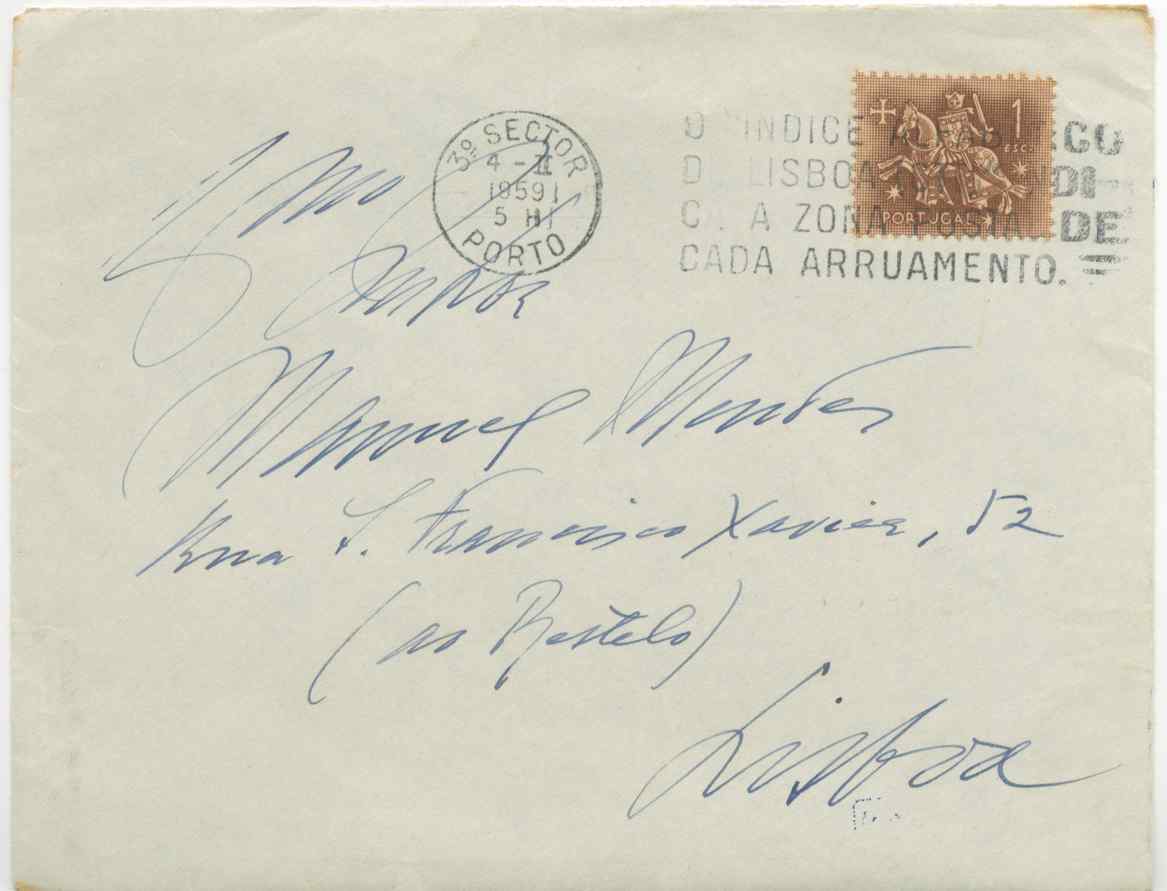 3º SECTOR
4 - II
1959
5 H
PORTO
O INDICE CO
DE LISBOA DI-
CA A ZONA POSTA DE
CADA ARRUAMENTO.
1
ESC.
PORTUGAL
Exmo
Senhor
Manuel Mendes
Rua S. Francisco Xavier, 52
(ao Restelo)
Lisboa